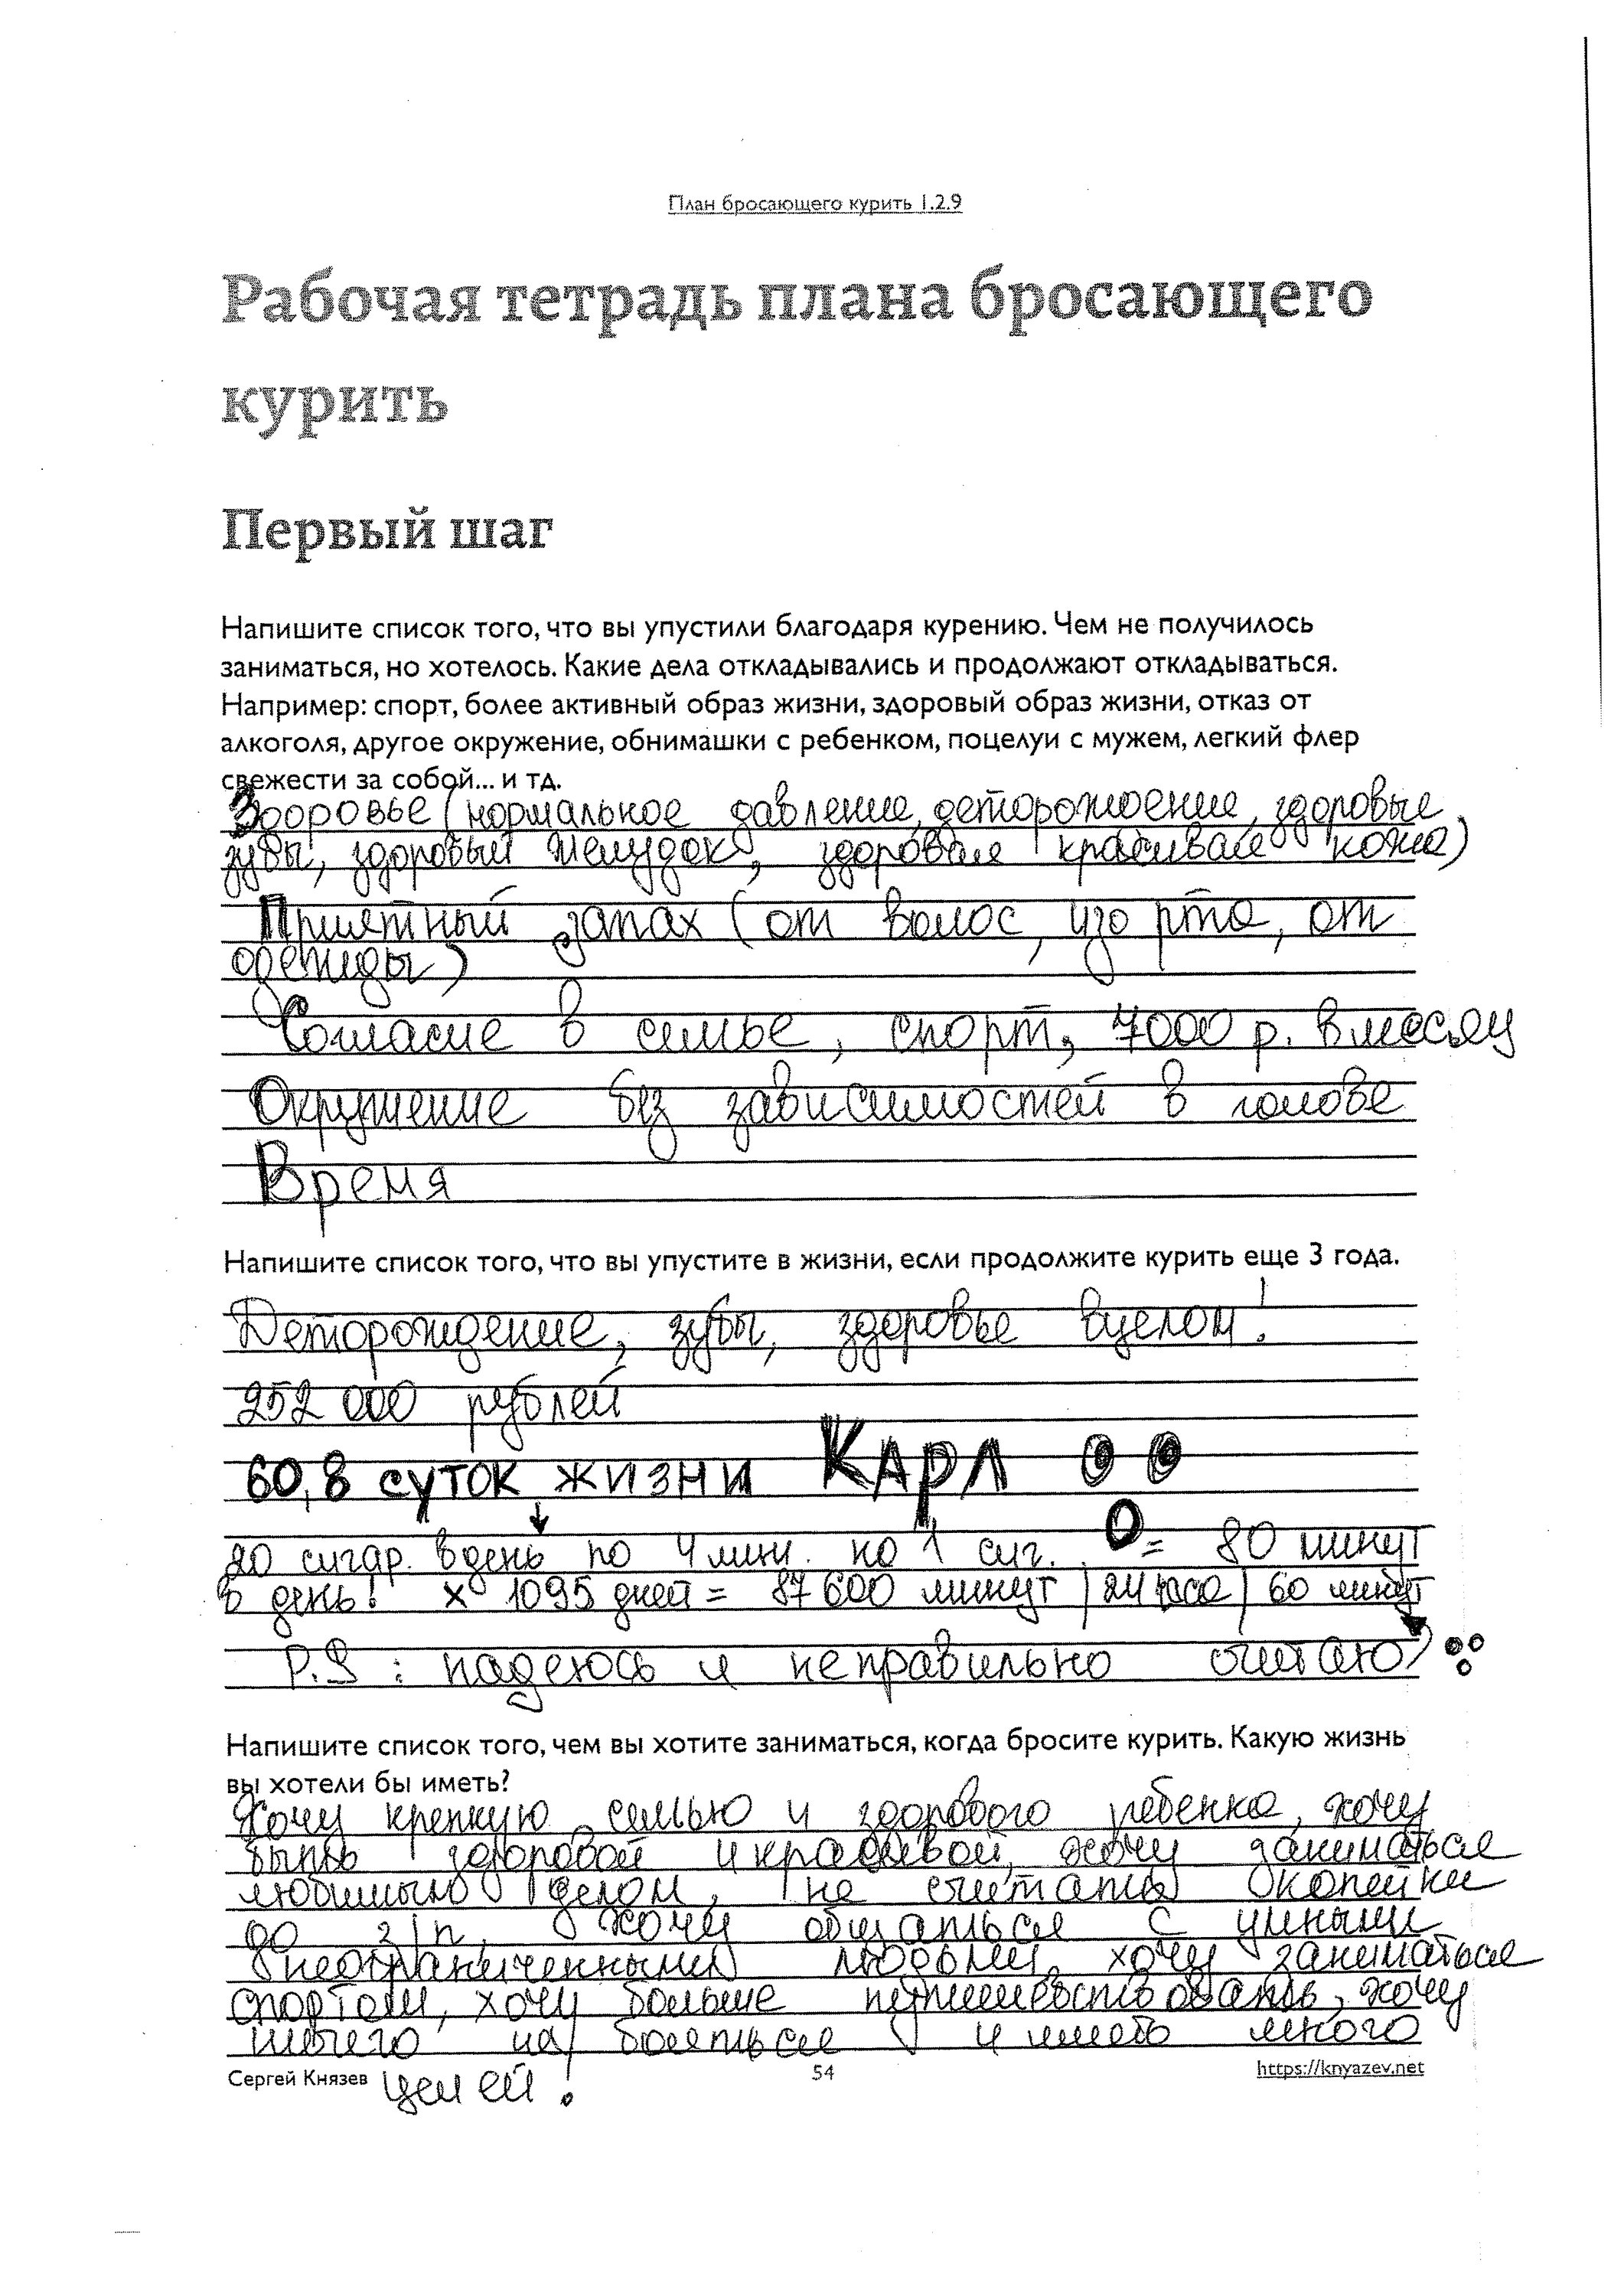 План бросающего курить 1.2.9
Рабочая тетрадь плана бросающего
курить
Первый шаг
Напишите список того, что вы упустили благодаря курению. Чем не получилось
заниматься, но хотелось. Какие дела откладывались и продолжают откладываться.
Например: спорт, более активный образ жизни, здоровый образ жизни, отказ от
алкоголя, другое окружение, обнимашки с ребенком, поцелуи с мужем, легкий флер
свежести за собой... и тд.
Здоровье (нормальное давление, деторождение, здоровые
зубы, здоровый желудок, здоровая красивая кожа)
Приятный запах (от волос, изо рта, от
одежды)
Согласие в семье, спорт, 7000 р. в месяц
Окружение без зависимостей в голове
Время
Напишите список того, что вы упустите в жизни, если продолжите курить еще 3 года.
Деторождение, зубы, здоровье вцелом!
252 000 рублей
60,8 суток жизни КАРЛ
20 сигар. в день по 4 мин. на 1 сиг. = 80 минут
в день! х 1095 дней = 87 600 минут / 24 часа / 60 минут
P.S : надеюсь я неправильно считаю?
Напишите список того, чем вы хотите заниматься, когда бросите курить. Какую жизнь
вы хотели бы иметь?
Хочу крепкую семью и здорового ребенка, хочу
быть здоровой и красивой, хочу заниматься
любимым делом, не считать копейки
до з/п, хочу общаться с умными
неограниченными людьми, хочу заниматься
спортом, хочу больше путешествовать, хочу
ничего не бояться и имею много
Сергей Князев целей!
54
https://knyazev.net